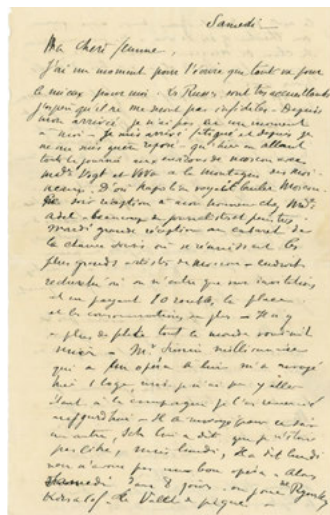 Samedi
Ma chère Jeanne,
J'ai un moment pour t'écrire que tout va pour
le mieux pour moi. Les Russes sont très accueillants
j'espère qu'ils ne me seront pas infidèles. Depuis
mon arrivée je n'ai pas eu un moment
à moi. Je suis arrivé fatigué et depuis je
ne me suis guère reposé qu'hier en allant
toute la journée aux environs de Moscou avec
à la montagne des Moi-
neaux. D'où Napoléon voyait brûler Moscou.
Le soir réception en mon honneur chez
beaucoup de journalistes et peintres.
Mardi grande réception au cabaret de
la chauve souris où se réunissent les
plus grands artistes de Moscou endroit
où on n'entre que sur invitations
et en payant 10 roubles la place
et les consommations en plus. Il n'y a
plus de place tout le monde voudrait
venir. Mr millionnaire
qui a un opéra à lui m'a envoyé
hier 1 loge, mais je n'ai pu y aller
étant à la campagne je l'ai remercié
aujourd'hui. Il a envoyé pour ce soir
un autre, lui a dit que je n'étais
pas libre, mais lundi, Il a dit lundi
nous n'avons pas un bon opéra. Alors
Samedi dans 8 jours. on joue de